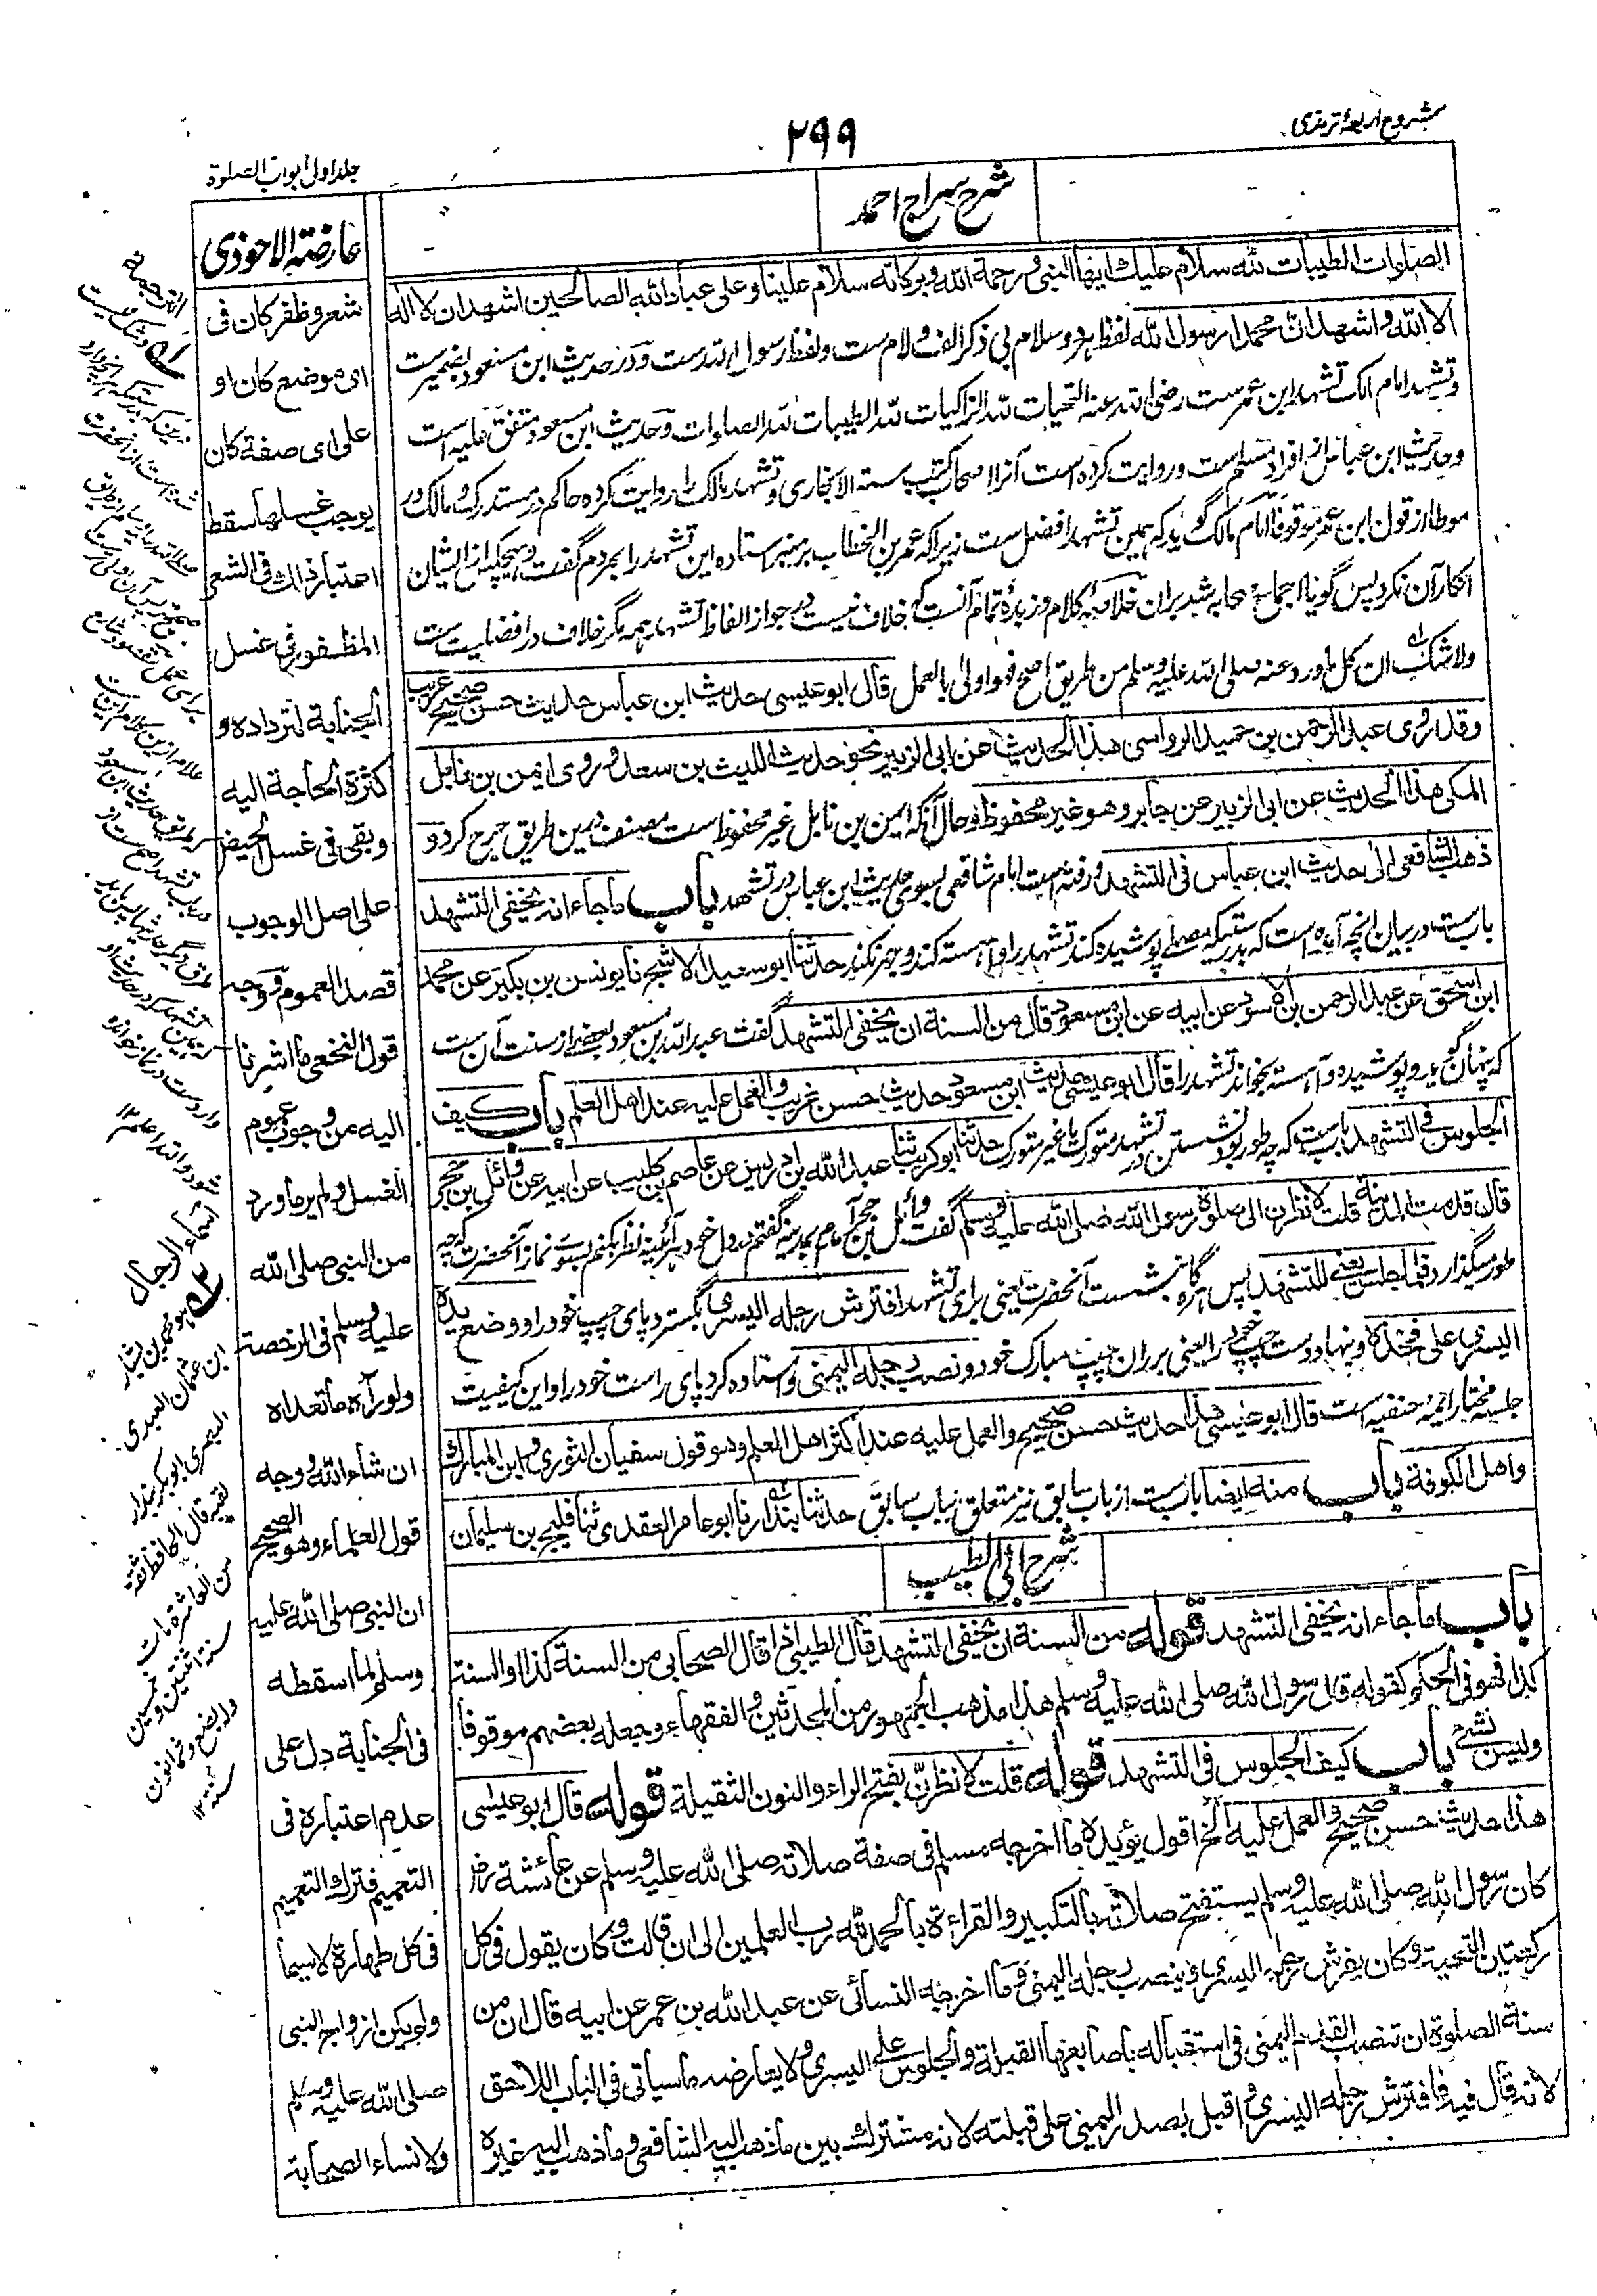 شروح اربعۂ ترمذی
۲۹۹
جلد اول ابواب الصلوة
شرح سراج احمد
الصلوات الطيبات لله سلام عليك ايها النبى ورحمة الله وبركاته سلام علينا وعلى عباد الله الصالحين اشهد ان لا اله
الا الله واشهد ان محمدا رسول الله لفظ هر دو سلام بی ذکر الف ولام ست ولفظ رسول الله ست ودر حدیث ابن مسعود بضمیرست
وتشهد امام مالک تشهد ابن عمرست رضی الله عنه التحيات لله الزاکیات لله الطيبات لله الصلوات وحدیث ابن مسعود متفق علیه است
وحدیث ابن عباس از افراد مسلم است وروایت کرده است آنرا اصحاب کتب سته الا بخاری وتشهد مالک را روایت کرده حاکم در مستدرک ومالک در
موطا از قول ابن عمر موقوفا امام مالک گوید که همین تشهد افضل ست زیراکه عمر بن الخطاب بر منبر ستاده این تشهد را بمردم گفت وهیچکس از ایشان
انکار آن نکرد پس گویا اجماع صحابه شد بران خلاصۂ کلام وزبدۂ تمام آنست که خلاف نیست در جواز الفاظ تشهد همه مگر خلاف در افضلیت ست
ولا شک ان كل ما ورد عنه صلى الله عليه وسلم من طريق اصح فهو اولى بالعمل قال ابو عيسى حديث ابن عباس حديث حسن صحيح غريب
وقد روى عبد الرحمن بن حميد الرواسى هذا الحديث عن ابى الزبير نحو حديث الليث بن سعد وروى ايمن بن نابل
المكى هذا الحديث عن ابى الزبير عن جابر وهو غير محفوظ وحال آنکه ایمن بن نابل غیر محفوظ است مصنف درین طریق جرح کرد و
ذهب الشافعى الى حديث ابن عباس فى التشهد ورفته است امام شافعی بسوی حدیث ابن عباس در تشهد باب ما جاء انه يخفى التشهد
بابست در بیان آنچه آمده است که بدرستیکه مصلی پوشیده کند تشهد را وآهسته کند وجهر نکند حدثنا ابو سعيد الاشج نا يونس بن بكير عن محمد
ابن اسحق عن عبد الرحمن بن الاسود عن ابيه عن ابن مسعود قال من السنة ان يخفى التشهد گفت عبد الله بن مسعود بعضی از سنت آن ست
که پنهان گوید وپوشیده وآهسته بخواند تشهد را قال ابو عيسى حديث ابن مسعود حديث حسن غريب والعمل عليه عند اهل العلم باب كيف
الجلوس فى التشهد بابست که چه طور بود نشستن در تشهد متورک یا غیر متورک حدثنا ابو كريب ثنا عبد الله بن ادريس عن عاصم بن كليب عن ابيه عن وائل بن حجر
قال قدمت المدينة قلت لانظرن الى صلوة رسول الله صلى الله عليه وسلم گفت وائل بن حجر آمدم بمدینه گفتم در دل خود هر آئینه نظر بکنم بسوی نماز آنحضرت که چه
طور میگذارد فلما جلس يعنى للتشهد پس هرگاه نشست آنحضرت یعنی برای تشهد افترش رجله اليسرى بگسترد پای چپ خود را ووضع يده
اليسرى على فخذه ونهاد دست چپ خود را یعنی بر ران چپ مبارک خود ونصب رجله اليمنى واستاده کرد پای راست خود را واین کیفیت
جلسه مختار ائمۂ حنفیه است قال ابو عيسى هذا حديث حسن صحيح والعمل عليه عند اكثر اهل العلم وهو قول سفيان الثورى وابن المبارك
واهل الكوفة باب منه ايضا بابست از باب سابق نیز متعلق بباب سابق حدثنا بندار نا ابو عامر العقدى ثنا فليح بن سليمان
شرح ابی الطیب
باب ما جاء انه يخفى التشهد قوله من السنة ان يخفى التشهد قال الطيبى اذا قال الصحابى من السنة كذا او السنة
كذا فهو فى الحكم كقوله قال رسول الله صلى الله عليه وسلم هذا مذهب الجمهور من المحدثين والفقهاء وجعله بعضهم موقوفا
وليس بشئ باب كيف الجلوس فى التشهد قوله قلت لانظرن بفتح الراء والنون الثقيلة قوله قال ابو عيسى
هذا حديث حسن صحيح والعمل عليه الخ اقول يؤيده ما اخرجه مسلم فى صفة صلاته صلى الله عليه وسلم عن عائشة رض
كان رسول الله صلى الله عليه وسلم يستفتح صلاته بالتكبير والقراءة بالحمد لله رب العلمين الى ان قالت وكان يقول فى كل
ركعتين التحية وكان يفرش رجله اليسرى وينصب رجله اليمنى وما اخرجه النسائى عن عبد الله بن عمر عن ابيه قال ان من
سنة الصلوة ان تنصب القدم اليمنى فى استقباله باصابعها القبلة والجلوس على اليسرى ولا يعارضه ما سياتى فى الباب اللاحق
لانه قال فيه فافترش رجله اليسرى واقبل بصدر اليمنى على قبلته لانه مشترك بين ما ذهب اليه الشافعى وما ذهب اليه غيره
عارضة الاحوذى
شعر وظفر كان فى
اى موضع كان او
على اى صفة كان
يوجب غسلها سقط
اعتبار ذلك فى الشعر
المظفور فى غسل
الجنابة لترداده و
كثرة الحاجة اليه
وبقى فى غسل الحيض
على اصل الوجوب
قصد العموم ووجه
قول النخعى ما اشرنا
اليه من وجوب عموم
الغسل ولم ير ما ورد
من النبى صلى الله
عليه وسلم فى الرخصة
ولو رآه ما تعداه
ان شاء الله ووجه
قول العلماء وهو الصحيح
ان النبى صلى الله عليه
وسلم لما اسقطه
فى الجنابة دل على
عدم اعتباره فى
التعميم فترك التعميم
فى كل طهارة لا سيما
ولم يكن ازواج النبى
صلى الله عليه وسلم
ولا نساء الصحابة
الترجمة
اسماء الرجال
هو محمد بن بشار
ابن عثمان العبدى
البصرى ابو بكر بندار
ثقة قال الحافظ ثقة
من العاشرة مات
سنة اثنتين وخمسين
وله بضع وثمانون
سنة ۱۲